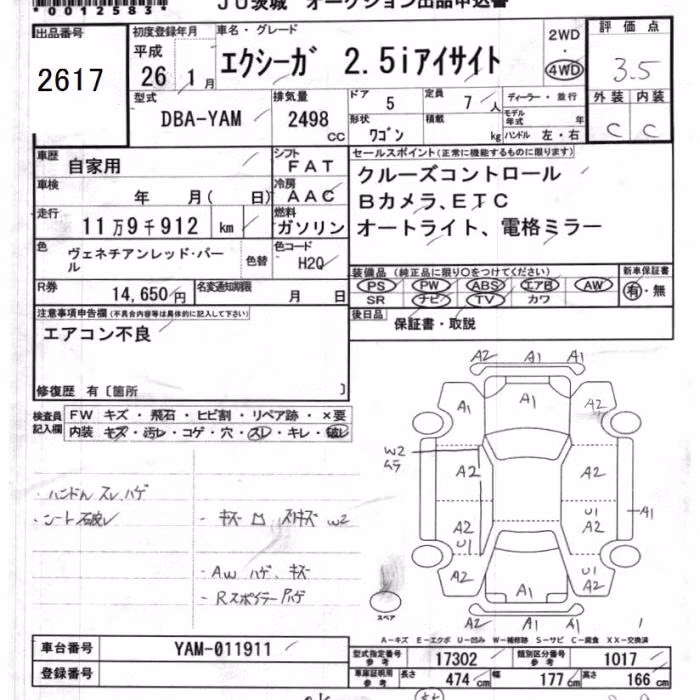 *0012583*
JU茨城 オークション出品申込書
出品番号
2617
初度登録年月
平成
26 1月
車名・グレード
エクシーガ 2.5iアイサイト
2WD
・
4WD
評価点
3.5
外装 内装
C C
型式
DBA-YAM
排気量
2498
CC
ドア
5
定員
7 人
形状
ワゴン
積載
kg
ディーラー・並行
モデル年式 年
ハンドル 左・右
車歴
自家用
シフト
FAT
車検
年 月( 日)
冷房
AAC
走行
11万9千912 km
燃料
ガソリン
色
ヴェネチアンレッド・パール
色替
色コード
H2Q
R券
14,650円
名変通知期限
月 日
セールスポイント(正常に機能するものに限ります)
クルーズコントロール
Bカメラ、ETC
オートライト、電格ミラー
装備品 (純正品に限り○をつけてください)
PS PW ABS エアB AW
SR ナビ TV カワ
新車保証書
有・無
後日品
保証書・取説
注意事項申告欄(不具合内容等は具体的に記入して下さい)
エアコン不良
修復歴 有〔箇所 〕
検査員
記入欄
FW キズ・飛石・ヒビ割・リペア跡・×要
内装 キズ・汚レ・コゲ・穴・スレ・キレ・破レ
・ハンドル スレ、ハゲ
・シート 破レ
・キズ 凹 スリキズ W2
・AW ハゲ、キズ
・Rスポイラー ハゲ
A2 A1 A1
A1 A1 A2
W2
ムラ
A2 A2
A2 U1
U1 A2
A1
A2 A1 U1
A2
A2 A1 A1
スペア
A-キズ E-エクボ U-凹み W-補修跡 S-サビ C-腐食 XX-交換済
車台番号
YAM-011911
登録番号
型式指定番号
参考
17302
類別区分番号
参考
1017
車庫証明用
参考
長さ 474 cm 幅 177 cm 高さ 166 cm